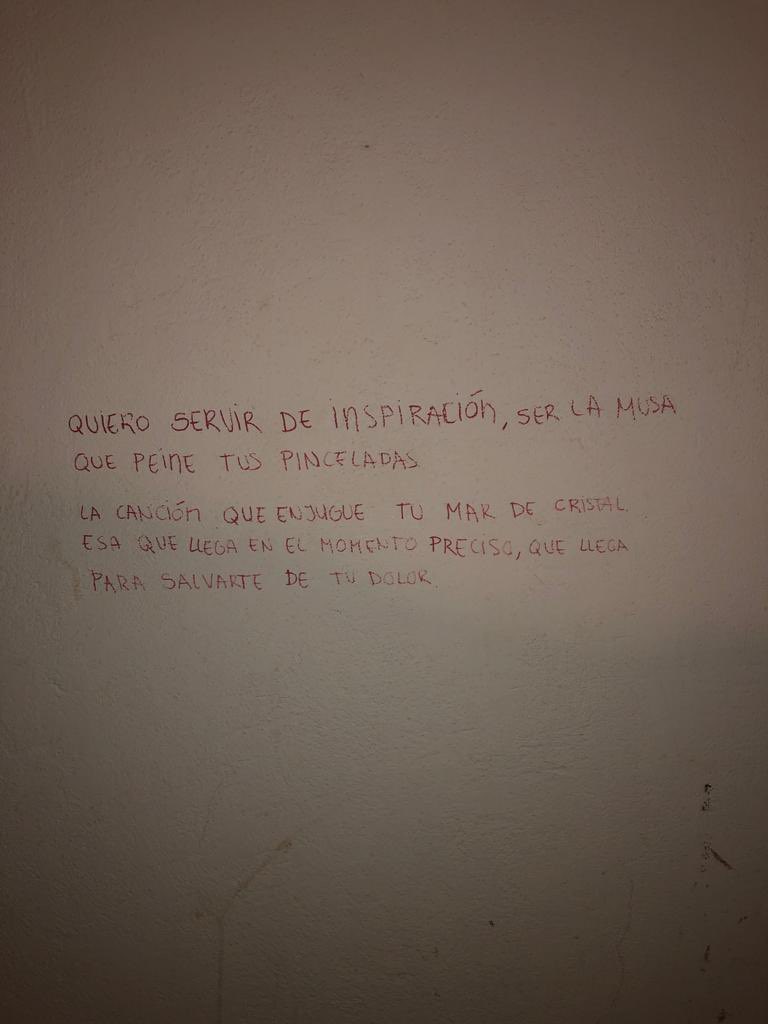 QUIERO SERVIR DE INSPIRACIÓN, SER LA MUSA
QUE PEINE TUS PINCELADAS
LA CANCIÓN QUE ENJUGUE TU MAR DE CRISTAL.
ESA QUE LLEGA EN EL MOMENTO PRECISO, QUE LLEGA
PARA SALVARTE DE TU DOLOR.